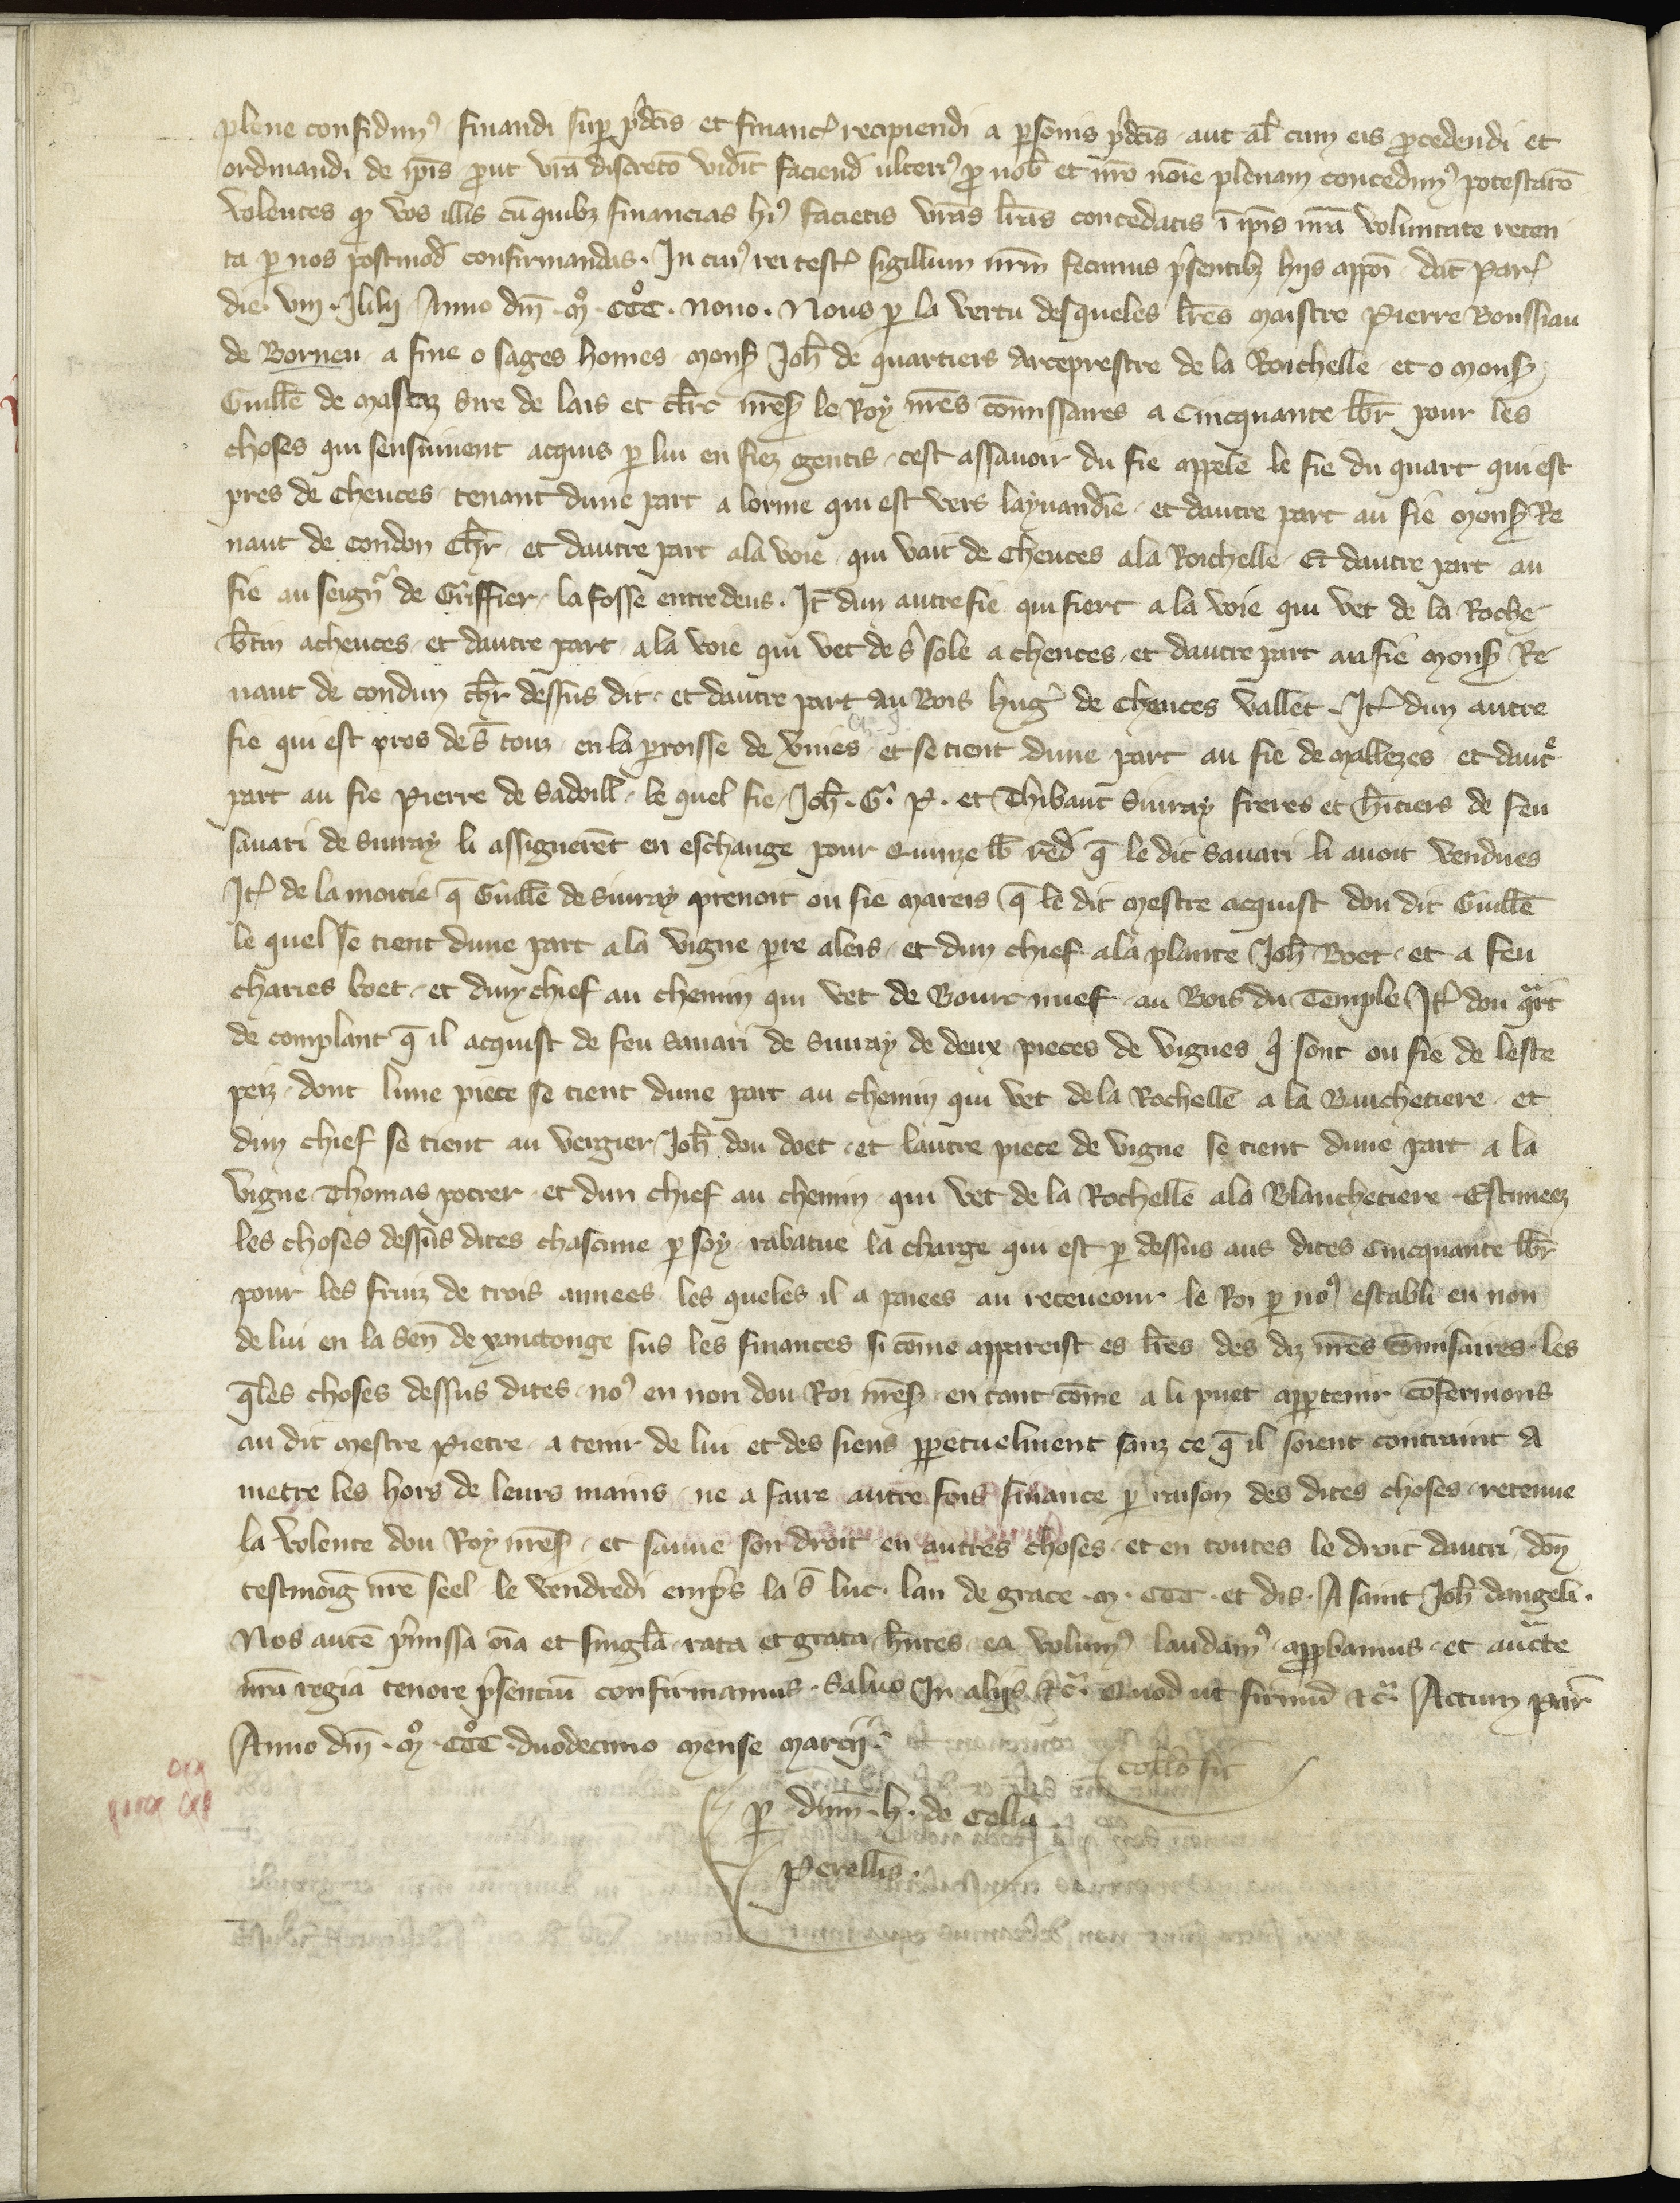 plene confidim⁹ finandi sup p̄dc̄is et financ̄ recipiendi a personis p̄dc̄is aut al̄ cum eis procedendi et
ordinandi de ip̄is prout vr̄a discretō vid̄it faciend̄ ulteri⁹ pro nob̄ et nr̄o noīe plenam concedim⁹ potestatē
volentes q̄ vos illis cū quibz financias hi⁹ facietis vr̄as lr̄as concedatis ī ip̄is nr̄a voluntate reten
ta p nos postmod̄ confirmandas. In cui⁹ rei test̄ sigillum nr̄m fecimus p̄sentibz hiis appōi dat̄ Par̄
die viij Julii Anno dn̄i .mº. cccº. nono. Nous p la vertu desqueles lr̄es maistre Pierre Boussiau
de Borneu a fine o sages homes mons̄ Joh̄ de quartiers Arceprestre de la Roichelle et o mons̄
Guill̄e de Mastaz sire de lais et cl̄erc nr̄es̄ le Roy nr̄es cōmissaires a Cincquante lb̄r pour les
choses qui sensuivent acquis p lui en fiez gentis cest assavoir du fie appele le fie du quart qui est
pres de Chences tenant dune part a lorme qui est vers laynaudie et dautre part au fie mons̄ Re
naut de condon ch̄r et dautre part a la voie qui vait de Chences a la Roichelle Et dautre part au
fie au seign̄r de Griffier la fosse entredeus. It̄ dun autre fie qui fiert a la voie qui vet de la Roche
b̄tin a chences et dautre part a la voie qui vet de s̄ sole a chences et dautre part au fie mons̄ Re
naut de condun ch̄r dessus dit et dautre part au Bois huḡ de Chences vallet. It̄ dun autre
fie qui est pres de s̄ touz en la proisse de vnies et se tient dune part au fie de mallezes et daut̄e
part au fie Pierre de Sadoill̄ le quel fie Joh̄. G. P. et Thibaut Sivray freres et h̄itiers de feu
savari de sivray li assignerēt en eschange pour Quinze lb̄ red̄ q̄ le dit savari li avoit vendues
It̄ de la moitie q̄ Guill̄e de Sivray prenoit ou fie mareis q̄ le dit mestre acquist dou dit Guill̄e
le quel se tient dune part a la vigne pre aleis et dun chief a la plante Joh̄ Boet et a feu
charles boet et dun chief au chemin qui vet de Bourc nuef au Bois du Temple It̄ dou q̄rt
de complant q̄ il acquist de feu savari de sivray de deux pieces de vignes q̄ sont ou fie de leste
peiz dont lune piece se tient dune part au chemin qui vet de la Rochelle a la Blanchetiere et
dun chief se tient au vergier Joh̄ dou doet et lautre piece de vigne se tient dune part a la
vigne Thomas potrer et dun chief au chemin qui vet de la Rochelle a la Blanchetiere Estimeez
les choses dessus dites chascune p soy rabatue la charge qui est p dessus aus dites Cincquante lb̄r
pour les fruiz de trois annees les queles il a paiees au receveour le Roi p no⁹ establi en non
de lui en la Sen̄ de xanctonge sus les finances si cōme appareist es lr̄es des diz nr̄es Cōmisaires les
q̄les choses dessus dites no⁹ en non dou Roi nr̄es̄ en tant cōme a li puet appartenir cōfermons
au dit mestre Pierre a tenir de lui et des siens perpetuelment sanz ce q̄ il soient contraint A
metre les hors de leurs mains ne a faire autre fois finance p raison des dites choses retenue
la volente dou Roy nr̄es̄ et sauve son droit en autres choses et en toutes le droit dautri doń
tesmoiḡ nr̄e seel le vendredi emp̄s la s̄ luc lan de grace .m. ccc. et dis. A saint Joh̄ dangeli.
Nos autē p̄missa ōia et singl̄a rata et grata h̄ntes ea volum⁹ laudam⁹ approbamus et auct̄te
nr̄a regia tenore p̄sentiū confirmamus. Salvo In aliis &c̄. Quod ut firmū &c̄. Actum Par̄
Anno dn̄i .mº. cccº. duodecimo mense marcii.
Coll̄o fit
p dn̄m .h. de Cella
Perellis.